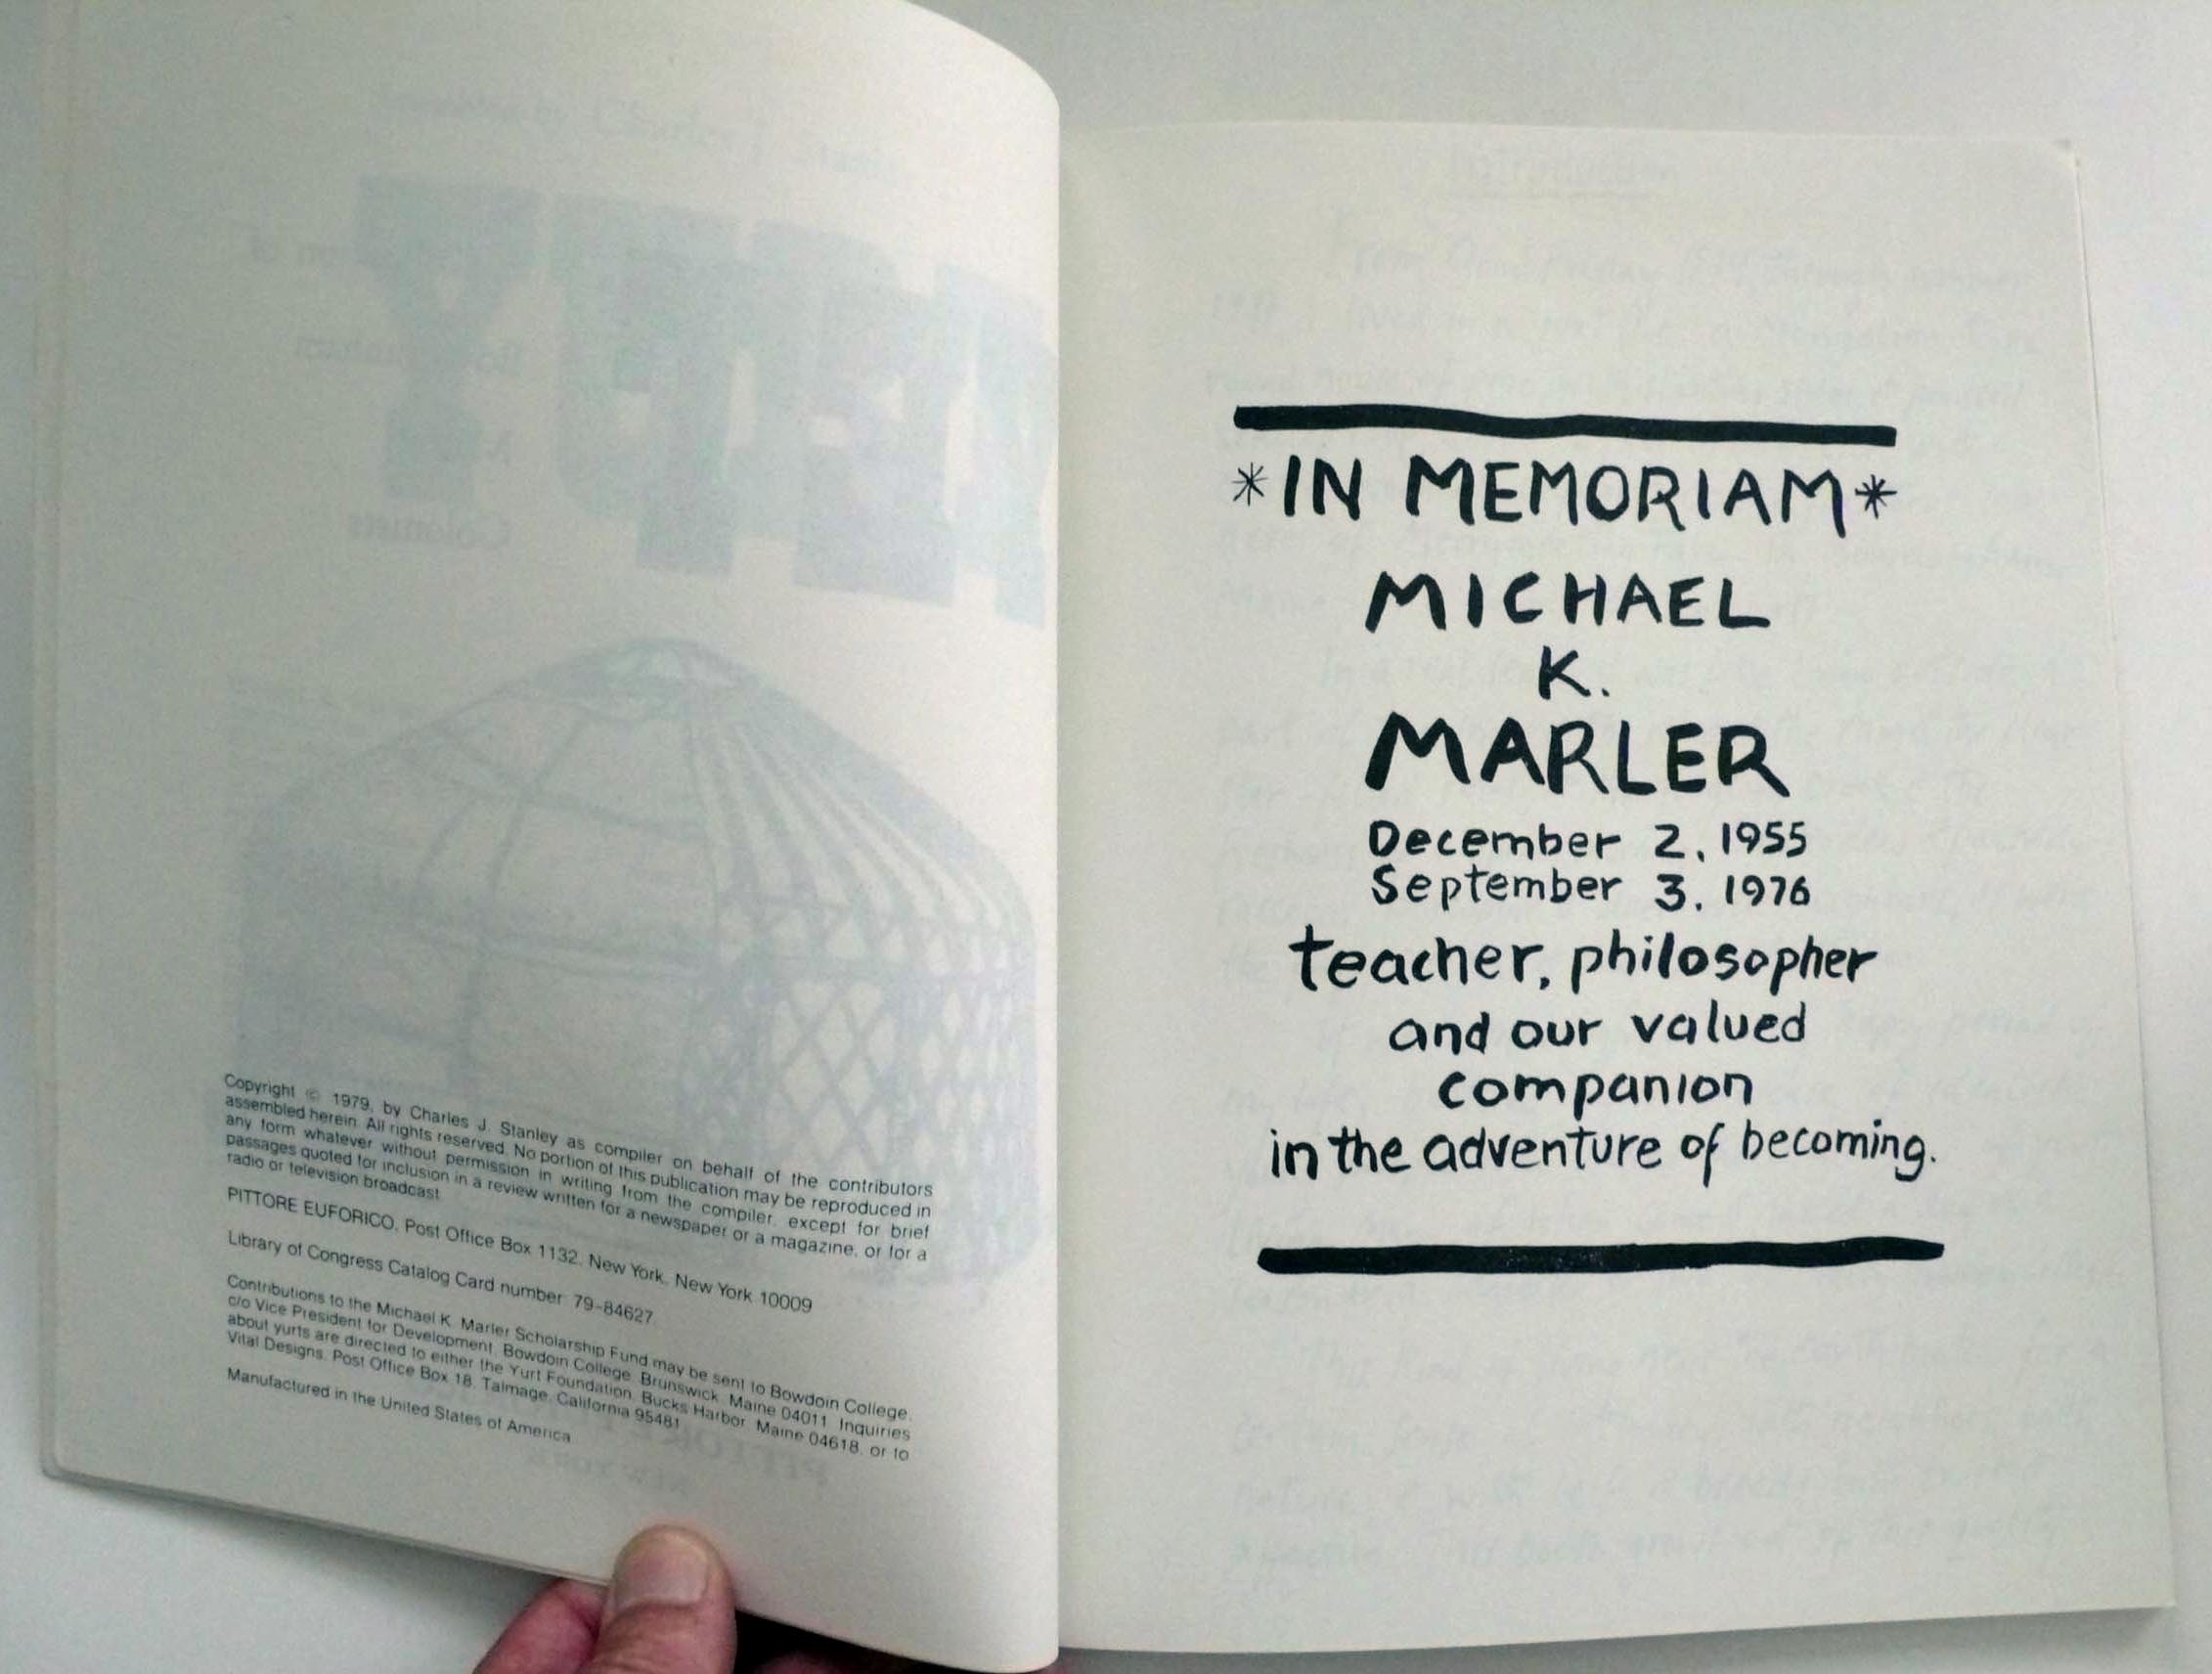 Copyright © 1979, by Charles J. Stanley as compiler on behalf of the contributors
assembled herein. All rights reserved. No portion of this publication may be reproduced in
any form whatever without permission in writing from the compiler, except for brief
passages quoted for inclusion in a review written for a newspaper or a magazine, or for a
radio or television broadcast.
PITTORE EUFORICO, Post Office Box 1132, New York, New York 10009
Library of Congress Catalog Card number 79-84627
Contributions to the Michael K. Marler Scholarship Fund may be sent to Bowdoin College,
c/o Vice President for Development, Bowdoin College, Brunswick, Maine 04011. Inquiries
about yurts are directed to either the Yurt Foundation, Bucks Harbor, Maine 04618, or to
Vital Designs, Post Office Box 18, Talmage, California 95481.
Manufactured in the United States of America
*IN MEMORIAM*
MICHAEL
K.
MARLER
December 2, 1955
September 3, 1976
teacher, philosopher
and our valued
companion
in the adventure of becoming.